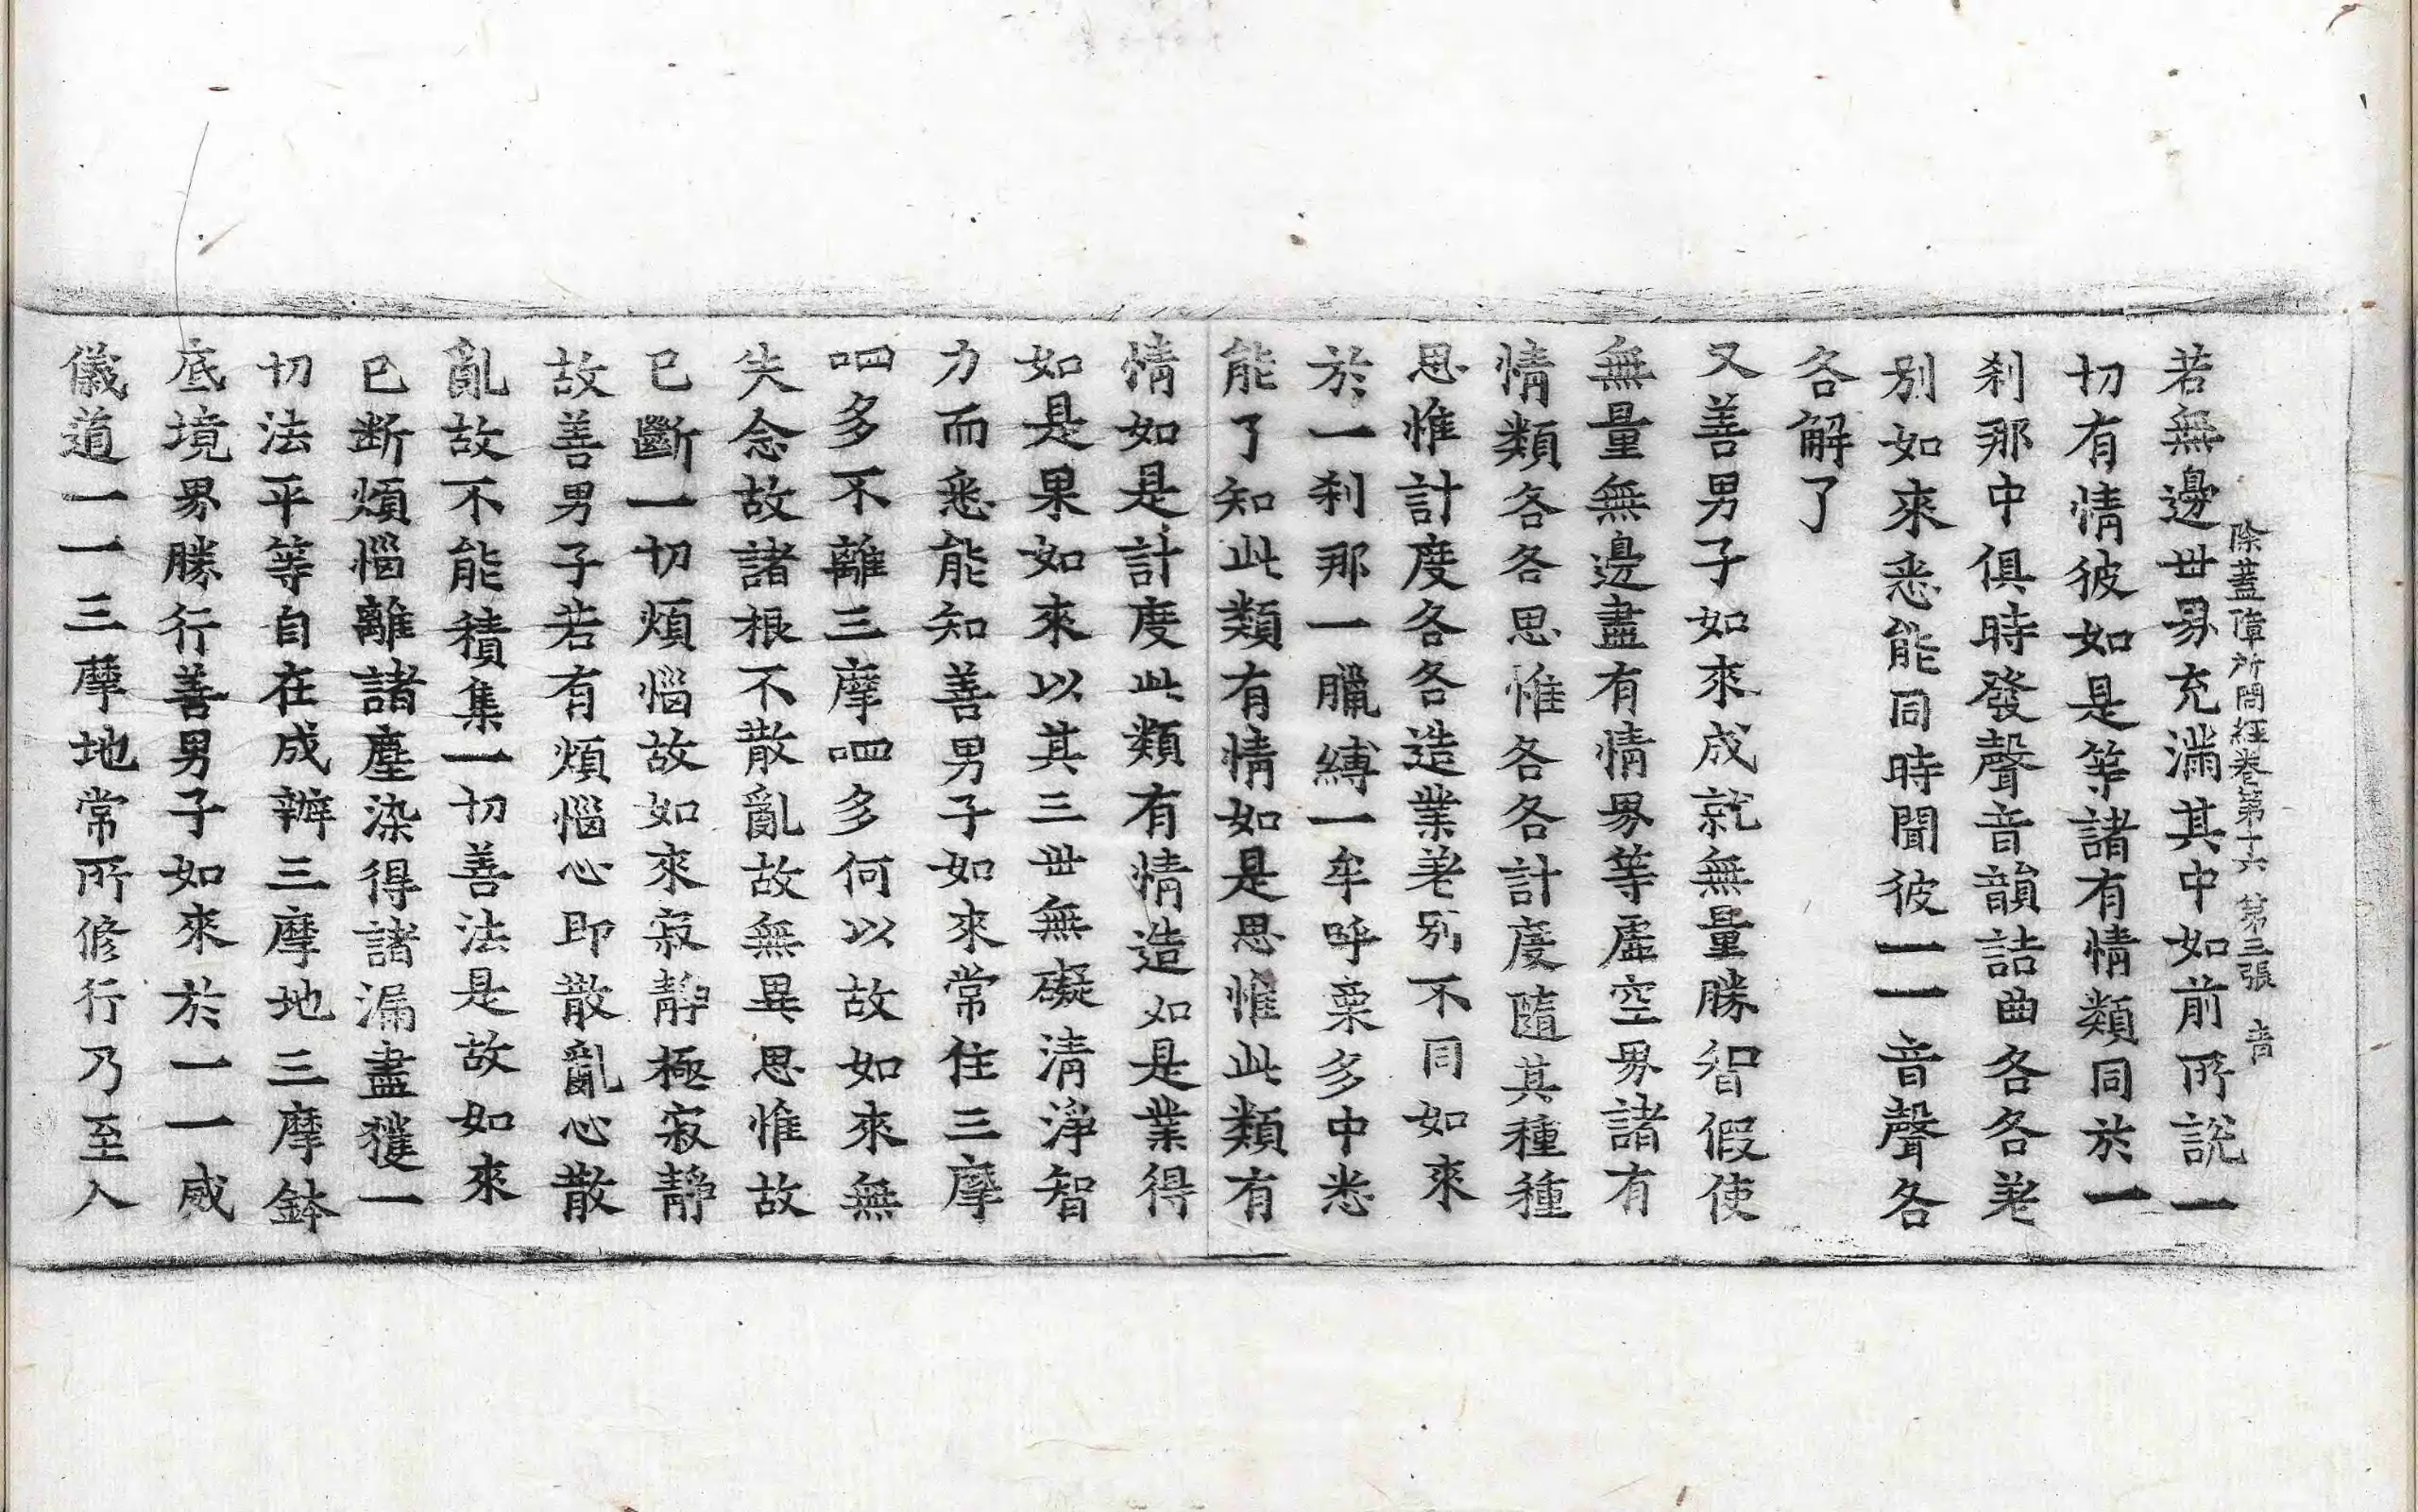 除蓋障所問經卷第十六 第三張 音
若無邊世界充滿其中如前所說一
切有情彼如是等諸有情類同於一
刹那中俱時發聲音韻詰曲各各差
別如來悉能同時聞彼一一音聲各
各解了
又善男子如來成就無量勝智假使
無量無邊盡有情界等虛空界諸有
情類各各思惟各各計度隨其種種
思惟計度各各造業差別不同如來
於一刹那一臘縛一牟呼栗多中悉
能了知此類有情如是思惟此類有
情如是計度此類有情造如是業得
如是果如來以其三世無礙清淨智
力而悉能知善男子如來常住三摩
呬多不離三摩呬多何以故如來無
失念故諸根不散亂故無異思惟故
已斷一切煩惱故如來寂靜極寂靜
故善男子若有煩惱心即散亂心散
亂故不能積集一切善法是故如來
已断煩惱離諸塵染得諸漏盡獲一
切法平等自在成辦三摩地三摩鉢
底境界勝行善男子如來於一一威
儀道一一三摩地常所修行乃至入